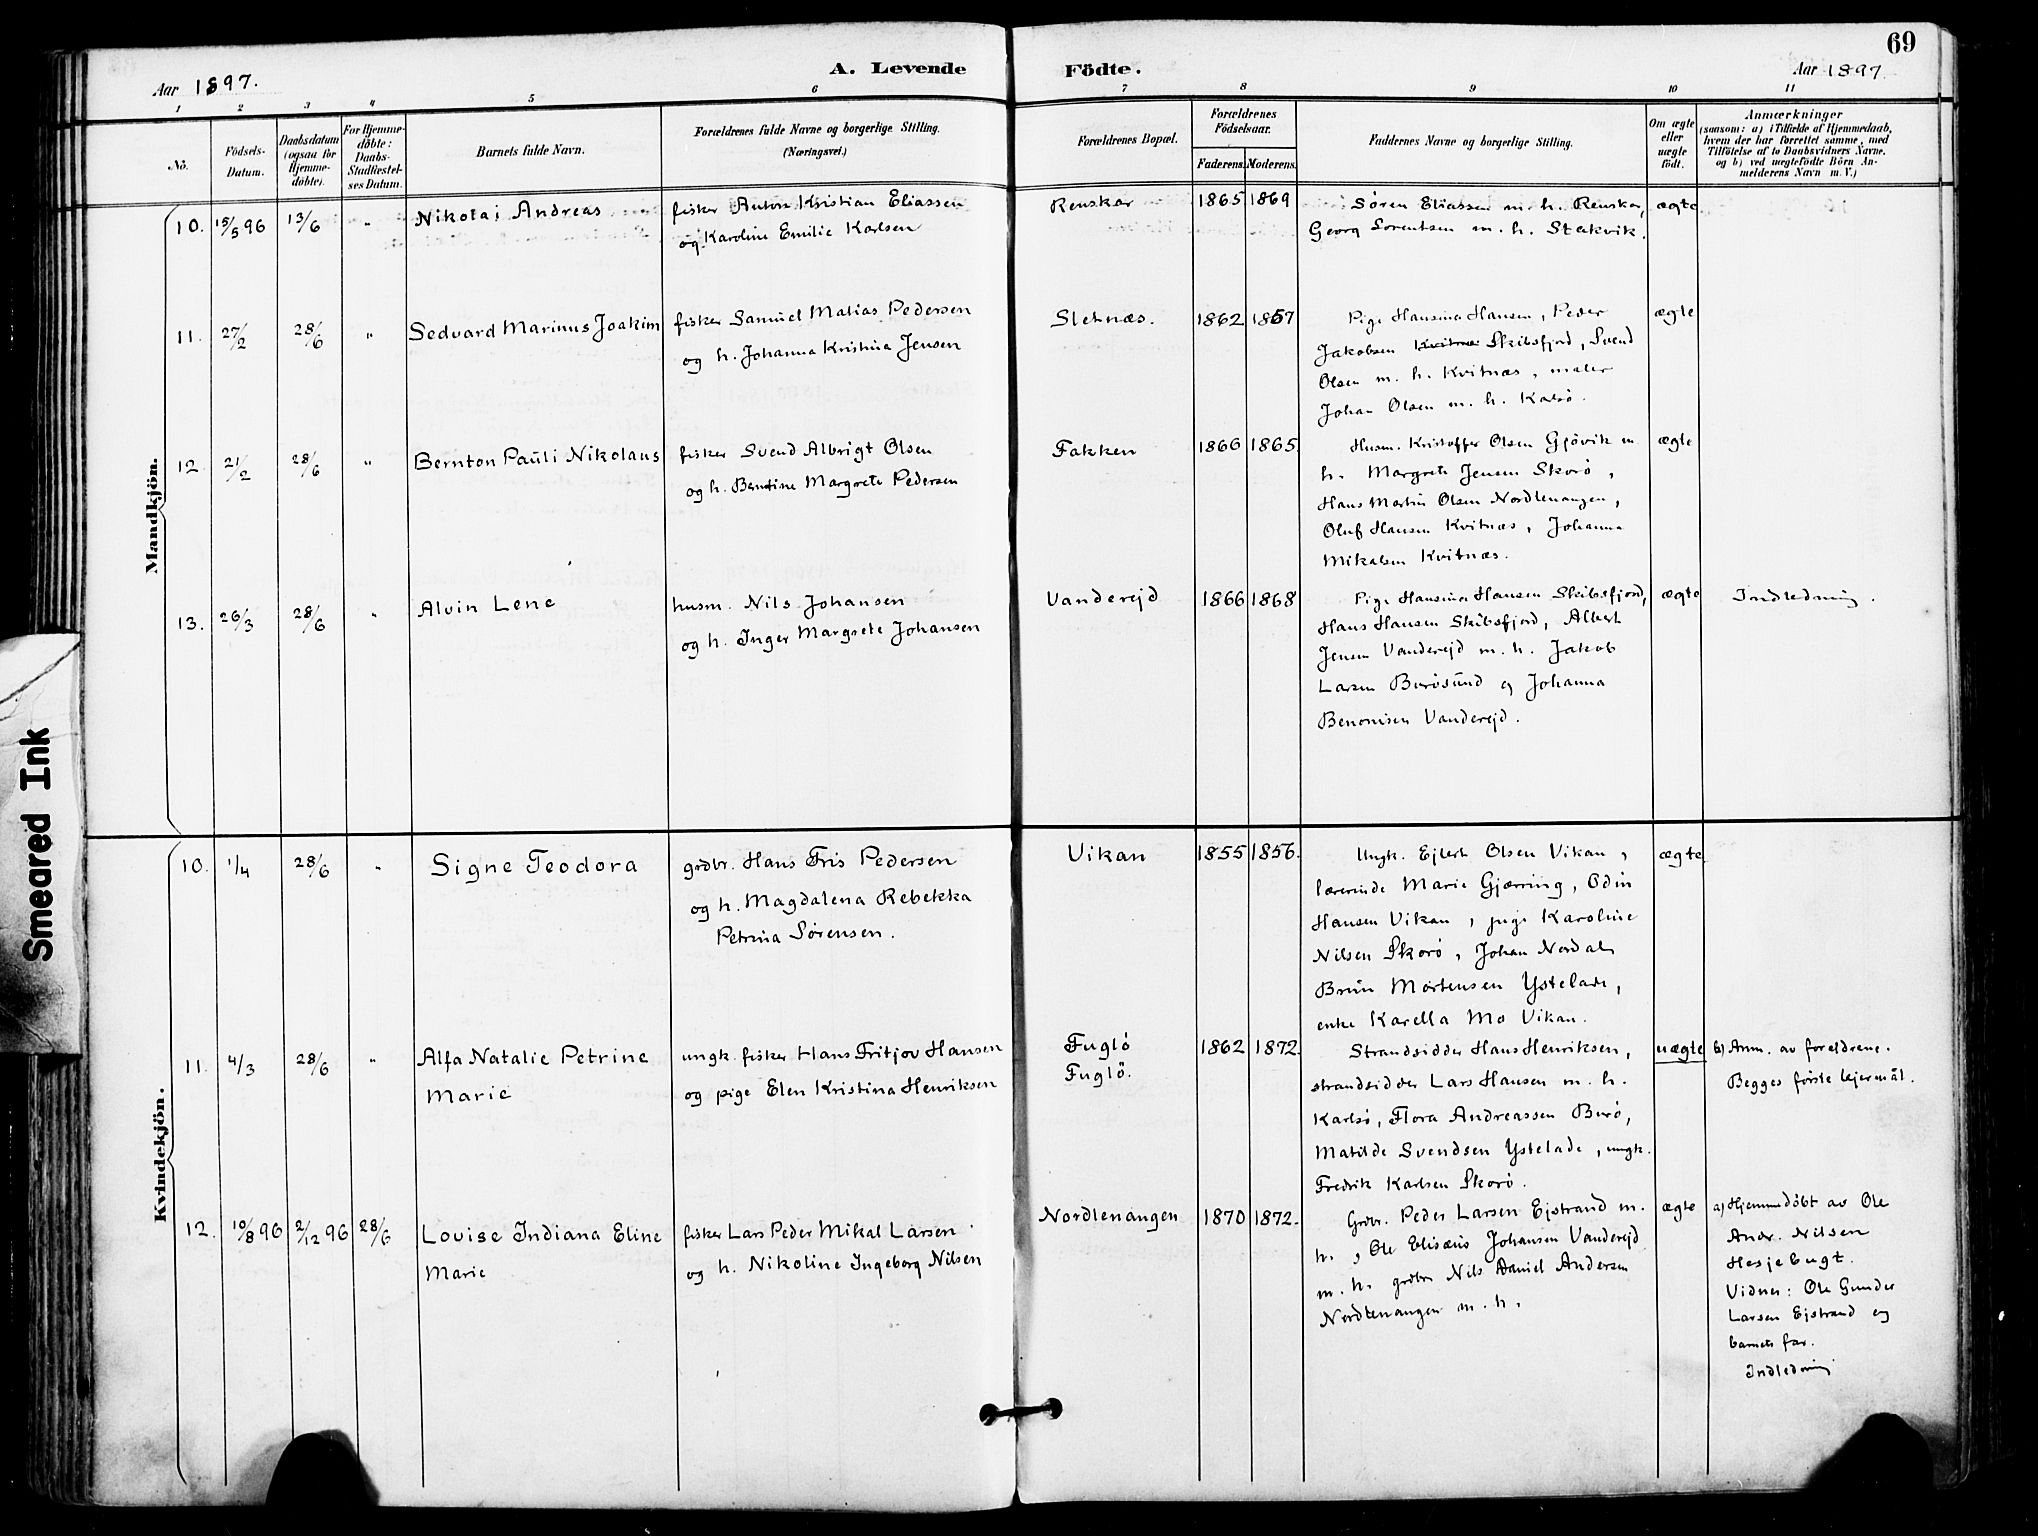 69
Aar 1897.
A. Levende Födte.
Aar 1897
1 2 3 4 5 6 7 8 9 10 11
No.
Födsels-Datum.
Daabsdatum (ogsaa for Hjemme-döbte).
For Hjemme-döbte: Daabs-Stadfæstel-ses Datum.
Barnets fulde Navn.
Forældrenes fulde Navne og borgerlige Stilling.
(Næringsvei.)
Forældrenes Bopæl.
Forældrenes Födselsaar.
Faderens. Moderens.
Faddernes Navne og borgerlige Stilling.
Om ægte eller uægte födt.
Anmærkninger
(saasom: a) i Tilfælde af Hjemmedaab,
hvem der har forrettet samme, med
Tilföielse af to Daabsvidners Navne,
og b) ved uægtefödte Börn An-
melderens Navn m. V.)
Mandkjön.
10. 15/5 96 13/6 " Nikolai Andreas
fisker Anton Kristian Eliassen
og Karoline Emilie Karlsen
Renskar 1865 1869
Søren Eliassen m. h. Renskar,
Georg Sorentsen m. h. Stakvik.
ægte
11. 27/2 28/6 " Sedvard Marinus Joakim
fisker Samuel Matias Pedersen
og h. Johanna Kristina Jensen
Sletnæs. 1862 1857
Pige Hansina Hansen, Peder
Jakobsen Kvitnæs Skibsfjord, Svend
Olsen m. h. Kvitnæs, maler
Johan Olsen m. h. Kalsø.
ægte
12 21/2 28/6 " Bernton Pauli Nikolaus
fisker Svend Albrigt Olsen
og h. Berntine Margrete Pedersen
Fakken 1866 1865.
Husm. Kristoffer Olsen Gjövik m
h. Margrete Jensen Skorø,
Hans Martin Olsen Nordlenangen,
Oluf Hansen Kvitnæs, Johanna
Mikalsen Kvitnæs.
ægte
13. 26/3 28/6 " Alvin Lene
husm. Nils Johansen
og h. Inger Margrete Johansen
Vanderejd 1866 1868
Pige Hansina Hansen Skibsfjord,
Hans Hansen Skibsfjord, Albert
Jensen Vanderejd m. h. Jakob
Larsen Burösund og Johanna
Benonisen Vanderejd.
ægte
Indledning.
Kvindekjön.
10. 1/4 28/6 " Signe Teodora
grdbr. Hans Fris Pedersen
og h. Magdalena Rebekka
Petrina Sørensen.
Vikan 1855 1856.
Ungk. Ejlert Olsen Vikan,
lærerinde Marie Gjærring, Odin
Hansen Vikan, pige Karoline
Nilsen Skorö, Johan Nordal
Brun Mortensen Ystelade,
enke Karella Mo Vikan.
ægte
11. 4/3 28/6 " Alfa Natalie Petrine
Marie
ungk. fisker Hans Fritjov Hansen
og pige Elen Kristina Henriksen
Fuglö
Fuglö.
1862 1872.
Strandsidder Hans Henriksen,
strandsidder Lars Hansen m. h.
Karlsö, Flora Andreassen Burö,
Matilde Svendsen Ystelade, ungk.
Fredrik Karlsen Skorö.
uægte
b) Anm. av foreldrene.
Begges første lejermål.
12. 10/8 96 2/12 96 28/6 Louise Indiana Eline
Marie
fisker Lars Peder Mikal Larsen
og h. Nikoline Ingeborg Nilsen
Nordlenangen 1870 1872.
Grdbr. Peder Larsen Ejstrand m.
h., Ole Elisæus Johansen Vanderejd
m. h. grdbr Nils Daniel Andersen
Nordlenangen m. h.
ægte
a) Hjemmedöbt av Ole
Andr. Nilsen
Hesjebugt.
Vidner: Ole Gunder
Larsen Ejstrand og
barnets far.
Indledning
Smeared Ink